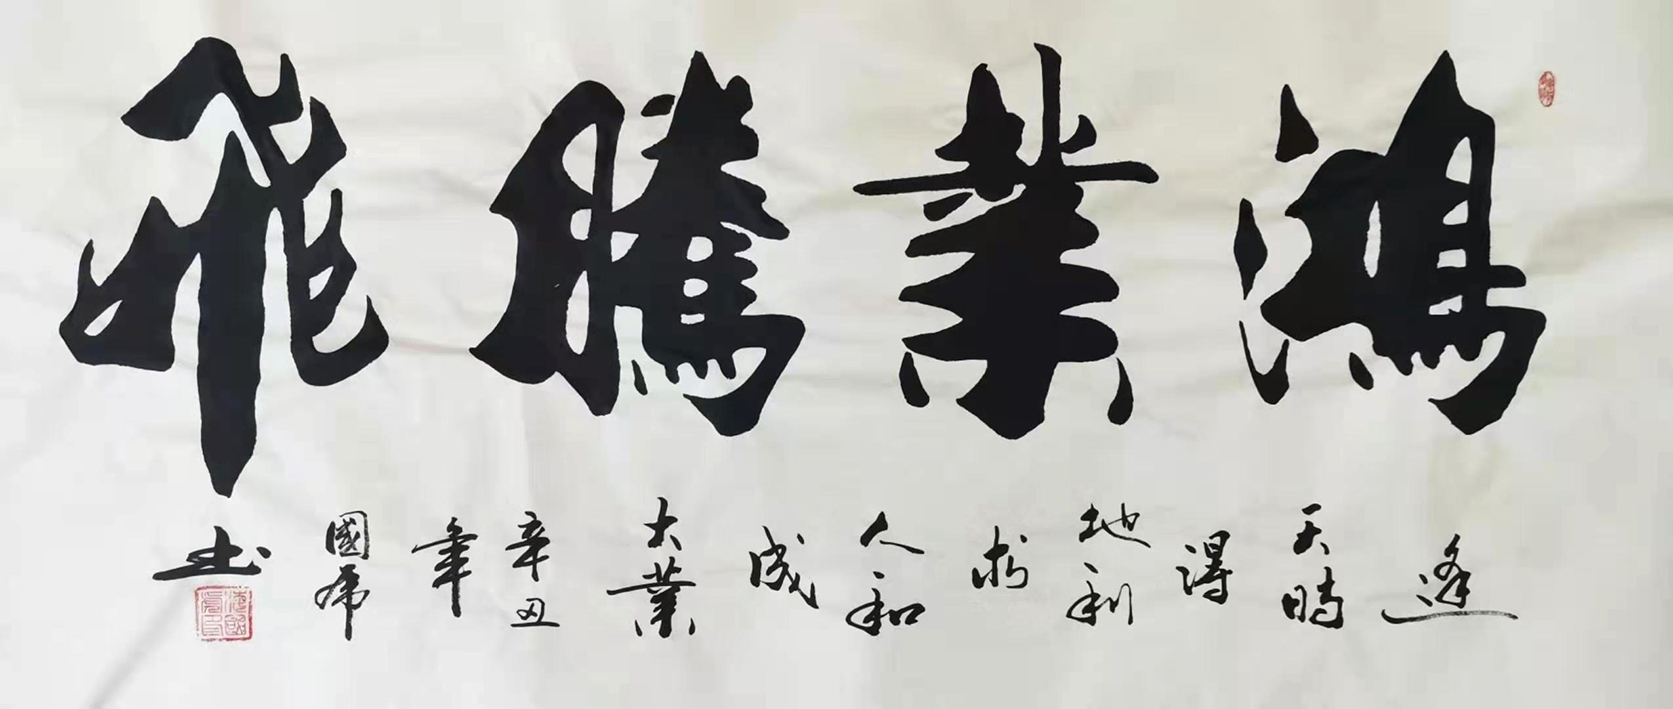 鴻業騰飛
逢天時得地利於人和成大業辛丑年國书